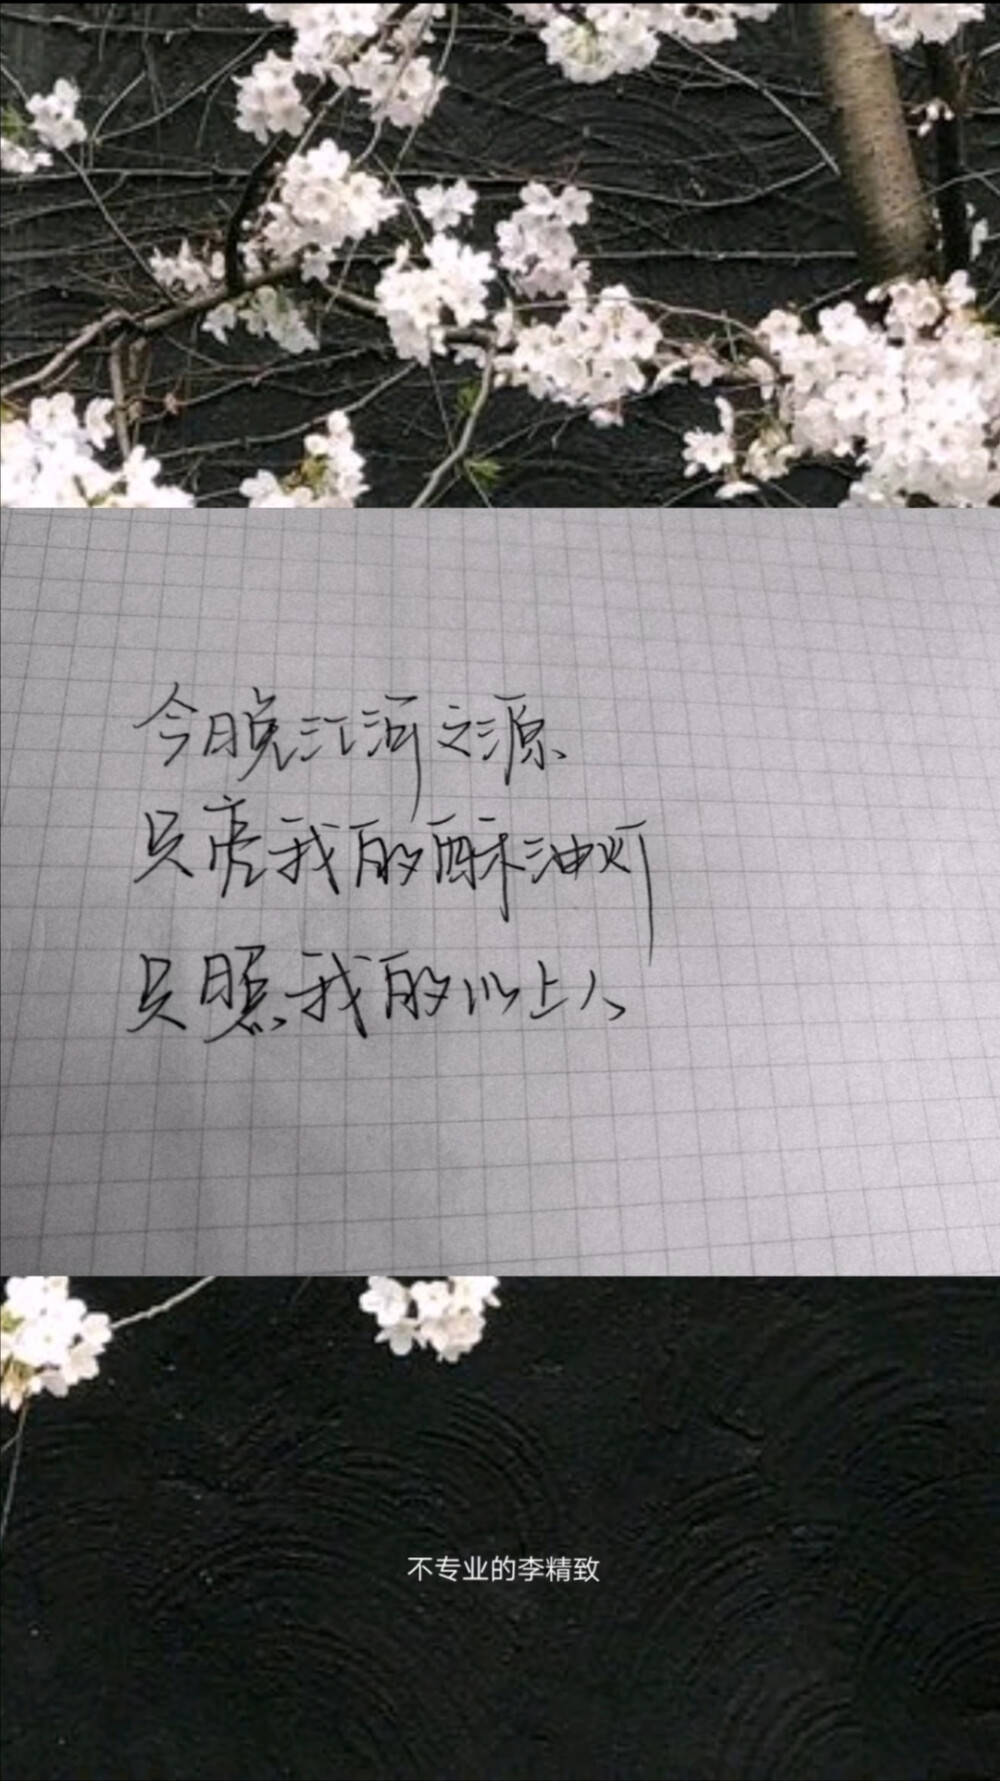 今晚江河之源
只亮我的酥油灯
只照我的心上人
不专业的李精致